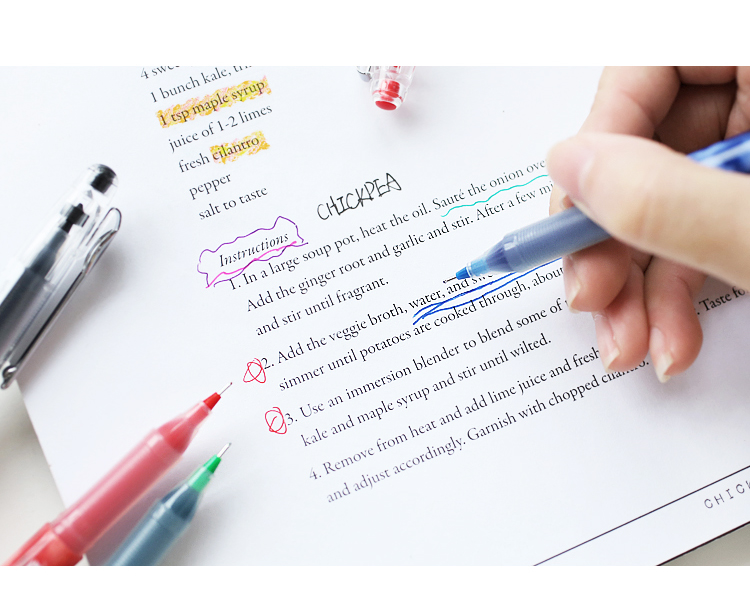 4
1 bunch kale,
1 tsp maple syrup
juice of 1-2 limes
fresh cilantro
pepper
salt to taste
CHICKPEA
Instructions
1. In a large soup pot, heat the oil. Sauté the onion
Add the ginger root and garlic and stir. After a few
and stir until fragrant.
2. Add the veggie broth, water, and
simmer until potatoes are cooked through,
3. Use an immersion blender to blend some of
kale and maple syrup and stir until wilted.
4. Remove from heat and add lime juice and fresh
Taste
and adjust accordingly. Garnish with chopped cilantro.